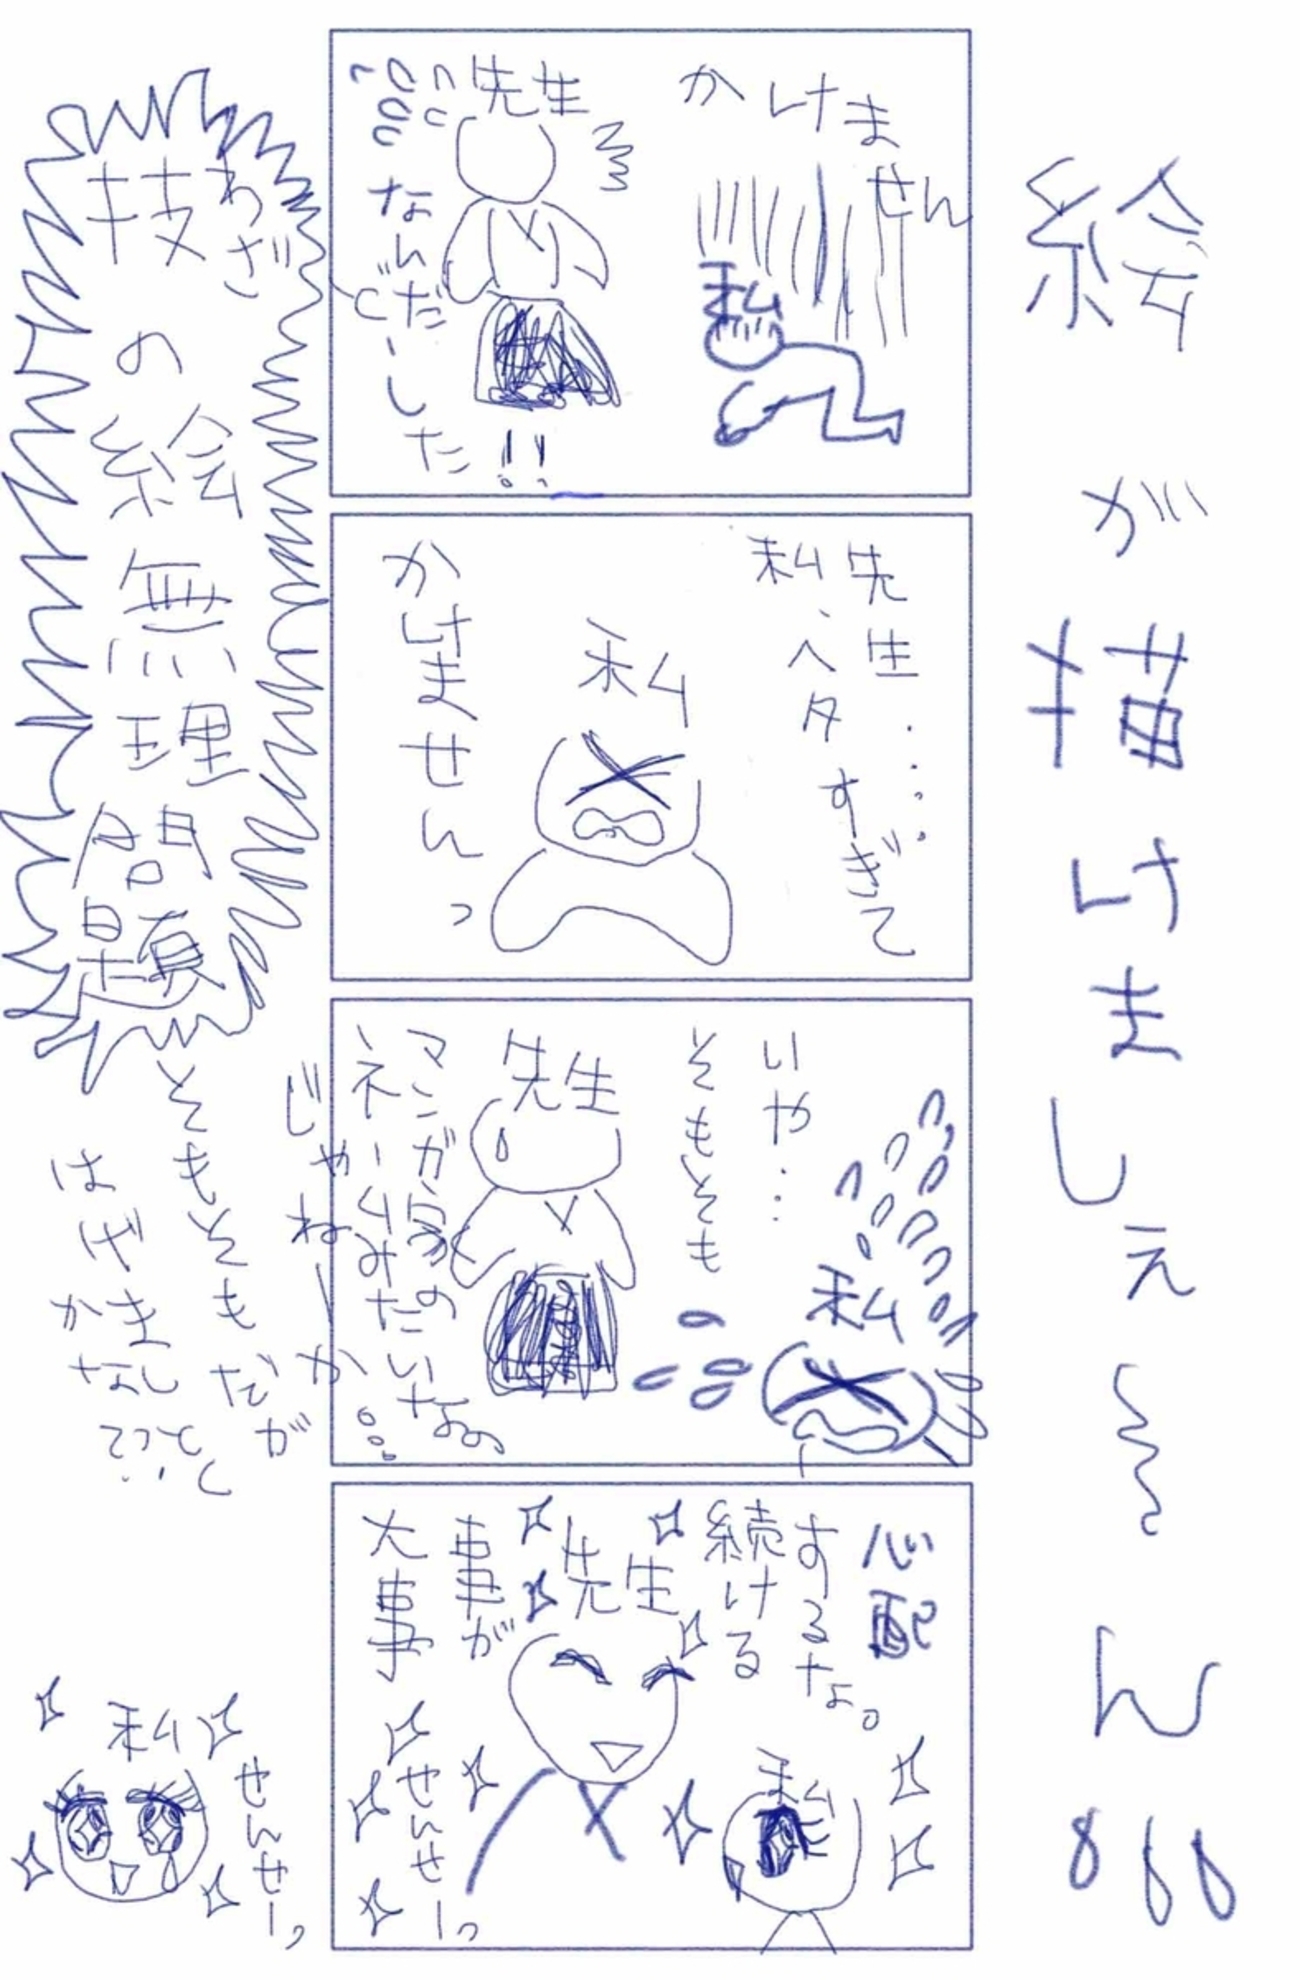 絵が描けましぇ〜ん
かけません
私
先生
なんだ
どーした!!
先生……
私、ヘタすぎて
私
かけませんっ
いや…
そもそも
私
先生
マンガ家の
ネームみたいなの
じゃねーか…
心配
するな。
続ける
先生
事が
大事
私
せんせーっ
わざ
技の絵無理問題
そもそもだが
はずかしくて
私
せんせーっ